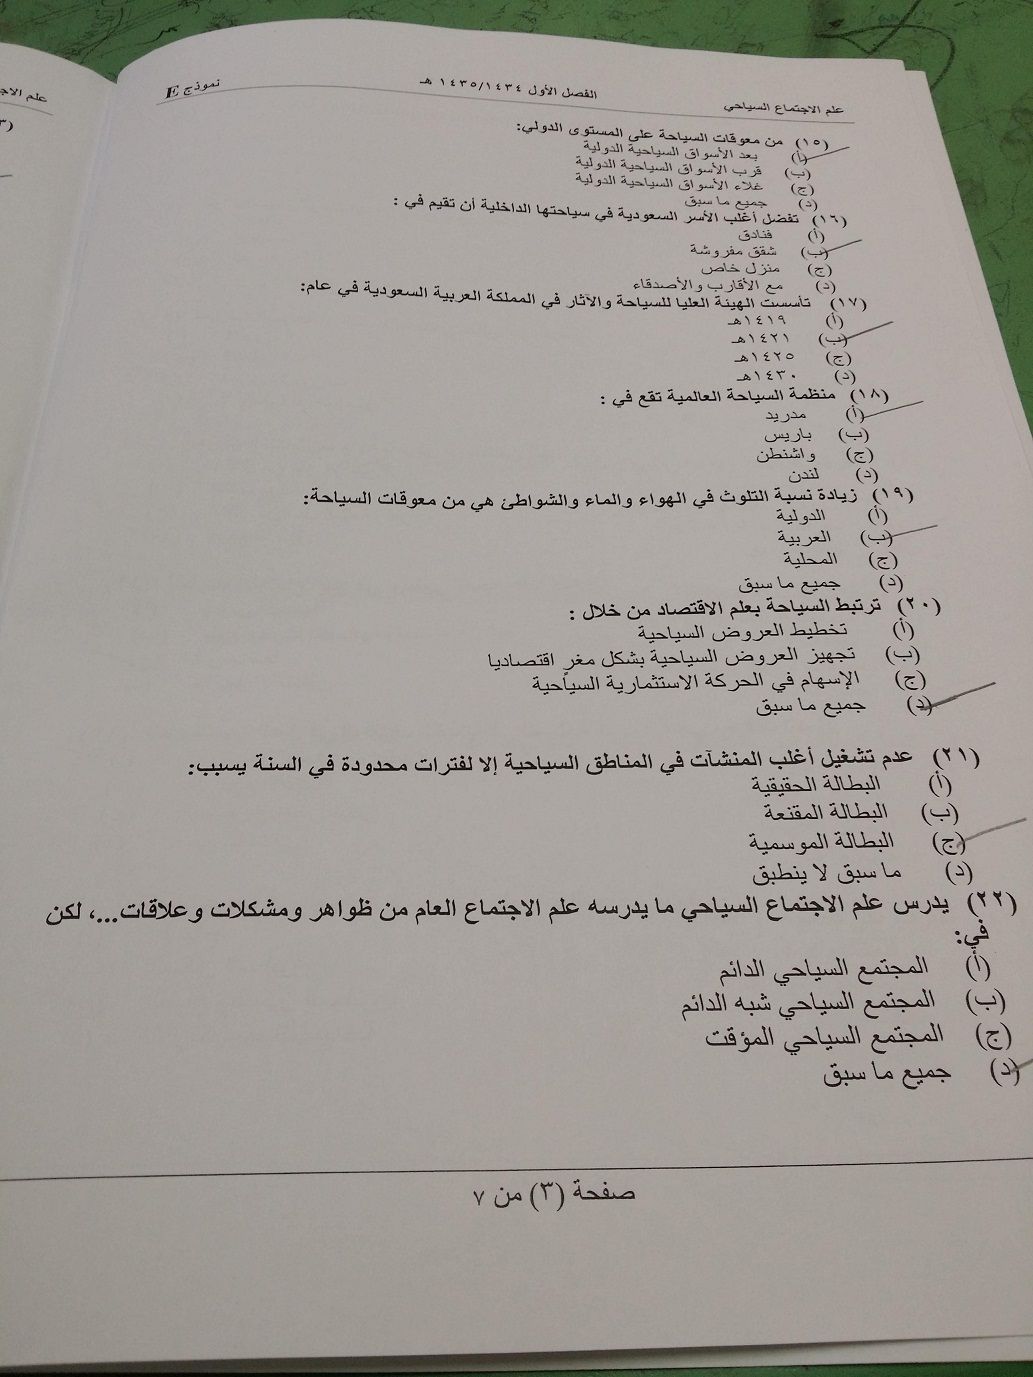 علم الاجتماع السياحي
الفصل الأول ١٤٣٥/١٤٣٤ هـ
نموذج E
(١٥) من معوقات السياحة على المستوى الدولي:
(أ) بعد الأسواق السياحية الدولية
(ب) قرب الأسواق السياحية الدولية
(ج) غلاء الأسواق السياحية الدولية
(د) جميع ما سبق
(١٦) تفضل أغلب الأسر السعودية في سياحتها الداخلية أن تقيم في :
(أ) فنادق
(ب) شقق مفروشة
(ج) منزل خاص
(د) مع الأقارب والأصدقاء
(١٧) تأسست الهيئة العليا للسياحة والآثار في المملكة العربية السعودية في عام:
(أ) ١٤١٩هـ
(ب) ١٤٢١هـ
(ج) ١٤٢٥هـ
(د) ١٤٣٠هـ
(١٨) منظمة السياحة العالمية تقع في :
(أ) مدريد
(ب) باريس
(ج) واشنطن
(د) لندن
(١٩) زيادة نسبة التلوث في الهواء والماء والشواطئ هي من معوقات السياحة:
(أ) الدولية
(ب) العربية
(ج) المحلية
(د) جميع ما سبق
(٢٠) ترتبط السياحة بعلم الاقتصاد من خلال :
(أ) تخطيط العروض السياحية
(ب) تجهيز العروض السياحية بشكل مغرٍ اقتصاديا
(ج) الإسهام في الحركة الاستثمارية السياحية
(د) جميع ما سبق
(٢١) عدم تشغيل أغلب المنشآت في المناطق السياحية إلا لفترات محدودة في السنة يسبب:
(أ) البطالة الحقيقية
(ب) البطالة المقنعة
(ج) البطالة الموسمية
(د) ما سبق لا ينطبق
(٢٢) يدرس علم الاجتماع السياحي ما يدرسه علم الاجتماع العام من ظواهر ومشكلات وعلاقات...، لكن
في:
(أ) المجتمع السياحي الدائم
(ب) المجتمع السياحي شبه الدائم
(ج) المجتمع السياحي المؤقت
(د) جميع ما سبق
صفحة (٣) من ٧